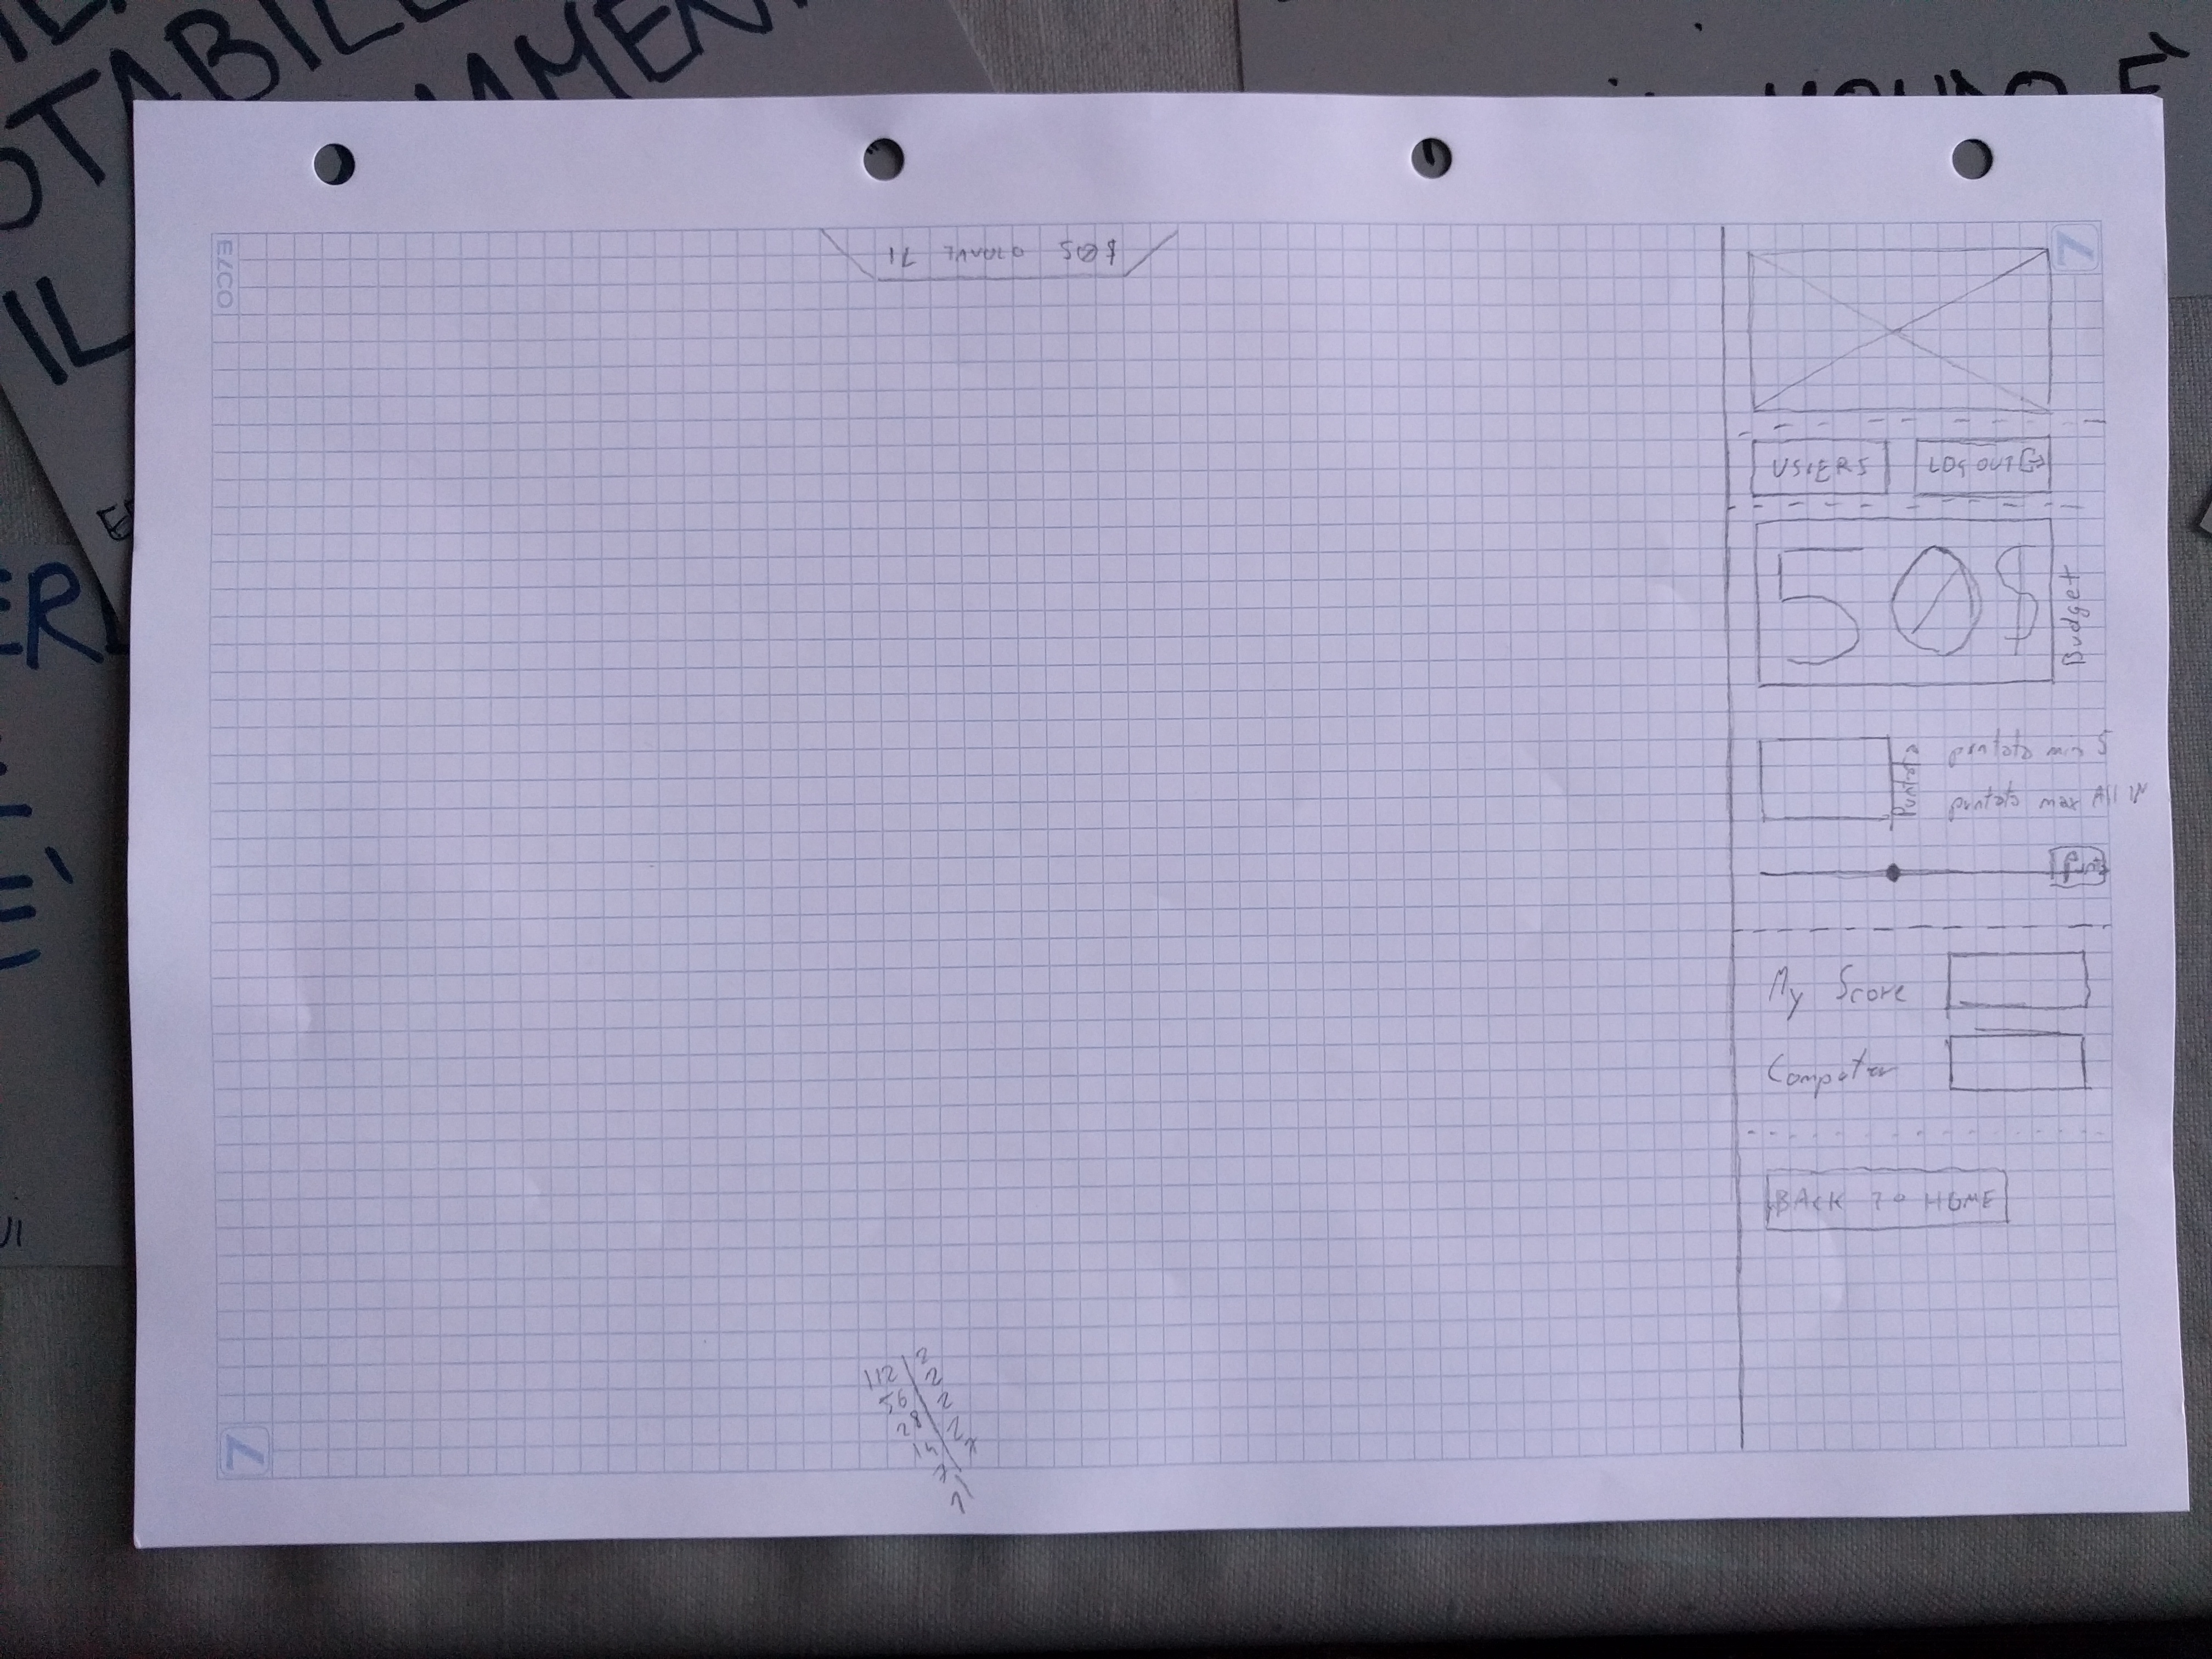 TABILE
AMEN
IL
ER
ELCO
7
USERS
LOGOUT
50$
Budget
Puntata
puntata min 5
puntata max All IN
My Score
Computer
BACK TO HOME
112 2
56 2
28 2
14 2
7 7
1
7